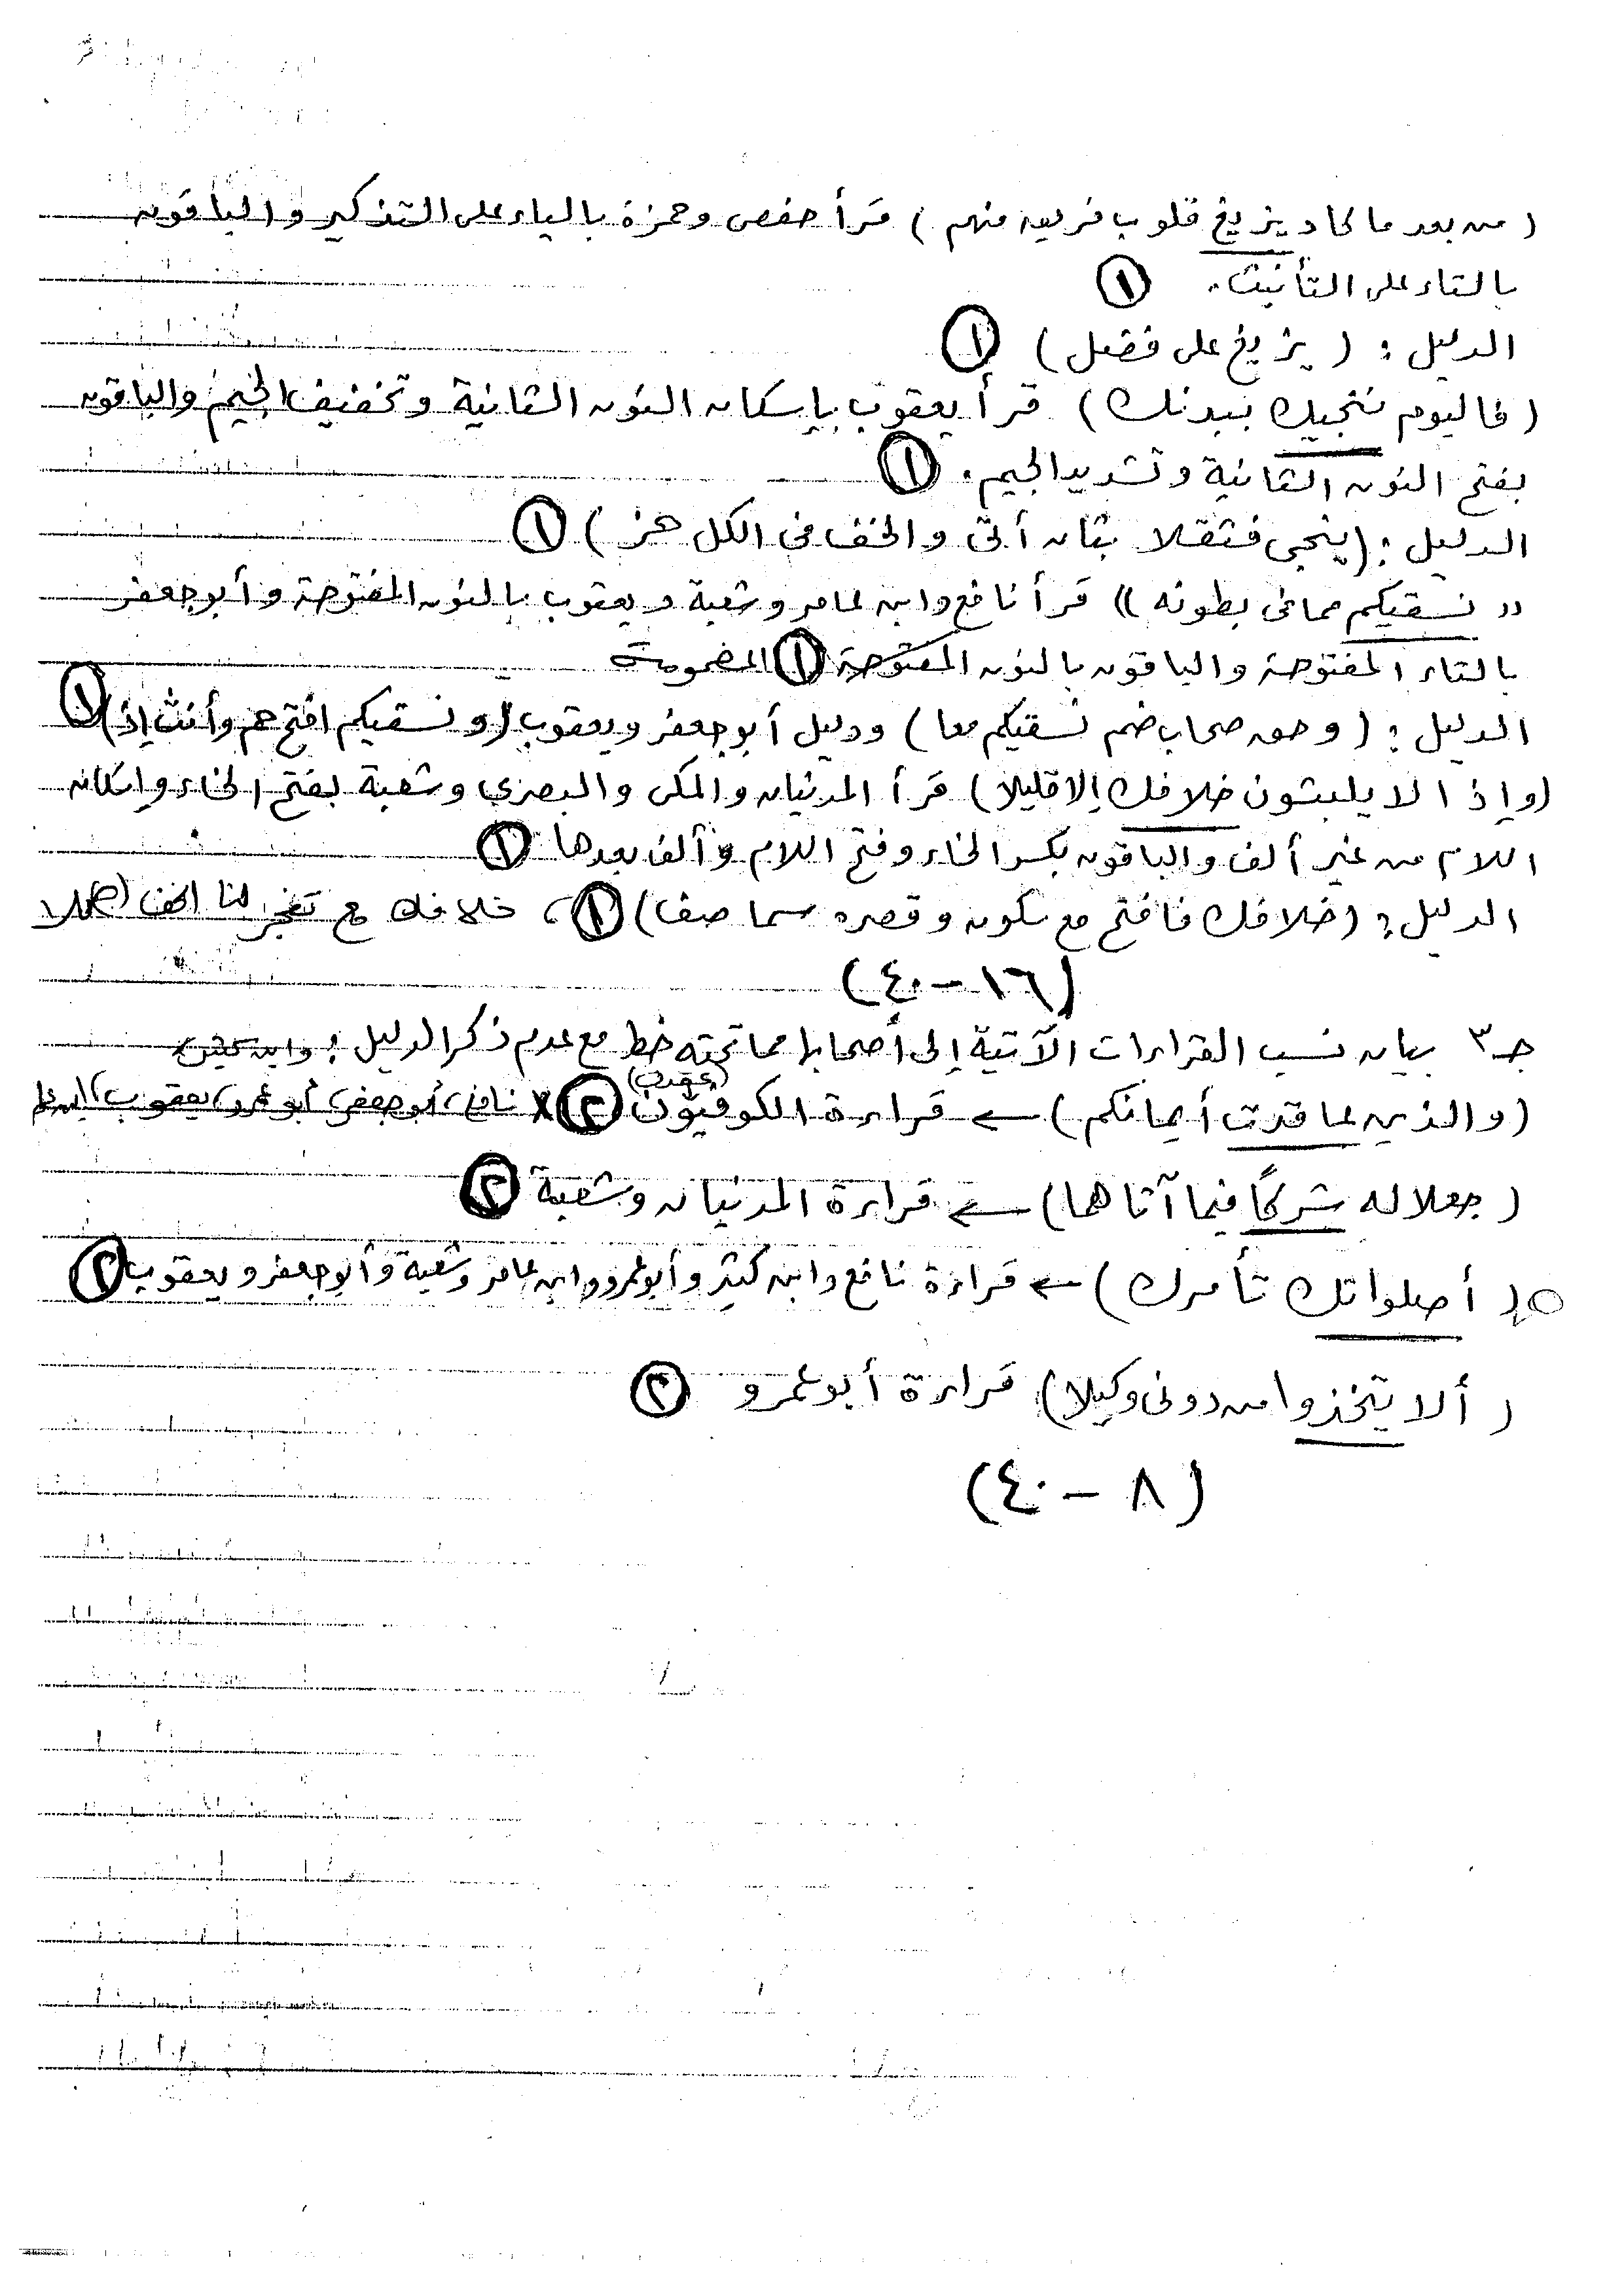 (من بعد ما كاد يزيغ قلوب فريق منهم) قرأ حفص وحمزة بالياء على التذكير والباقون
بالتاء على التأنيث. ١
الدليل: (يزيغ على فصل) ١
(فاليوم ننجيك ببدنك) قرأ يعقوب بإسكان النون الثانية وتخفيف الجيم والباقون
بفتح النون الثانية وتشديد الجيم. ١
الدليل: (ينجي فثقلا بثان أتى والخف في الكل حز) ١
(( نسقيكم مما في بطونه )) قرأ نافع وابن عامر وشعبة ويعقوب بالنون المفتوحة وأبو جعفر
بالتاء المفتوحة والباقون بالنون المفتوحة ١ المضمومة
الدليل: (وحق صحاب ضم نسقيكم معا) ودليل أبو جعفر ويعقوب (ونسقيكم افتح حم وأنث إذا) ١
(وإذا لا يلبثون خلافك إلا قليلا) قرأ المدنيان والمكي والبصري وشعبة بفتح الخاء وإسكان
اللام من غير ألف والباقون بكسر الخاء وفتح اللام وألف بعدها ١
الدليل: (خلافك فافتح مع سكون وقصره سما صف) ١، خلافك مع تفجر لنا الخف حملا
(١٦ - ٤٠)
جـ٣ بيان نسب القراءات الآتية إلى أصحابها مما تحته خط مع عدم ذكر الدليل:
(والذين عاقدت أيمانكم) ← قراءة الكوفيون (عقدت) ٢ x نافع، أبو جعفر، أبو عمرو، يعقوب،
(جعلا له شركًا فيما آتاها) ← قراءة المدنيان وشعبة ٢
(أصلواتك تأمرك) ← قراءة نافع وابن كثير وأبو عمرو وابن عامر وشعبة وأبو جعفر ويعقوب ٢
(ألا يتخذوا من دوني وكيلا) قراءة أبو عمرو ٢
(٨ - ٤٠)